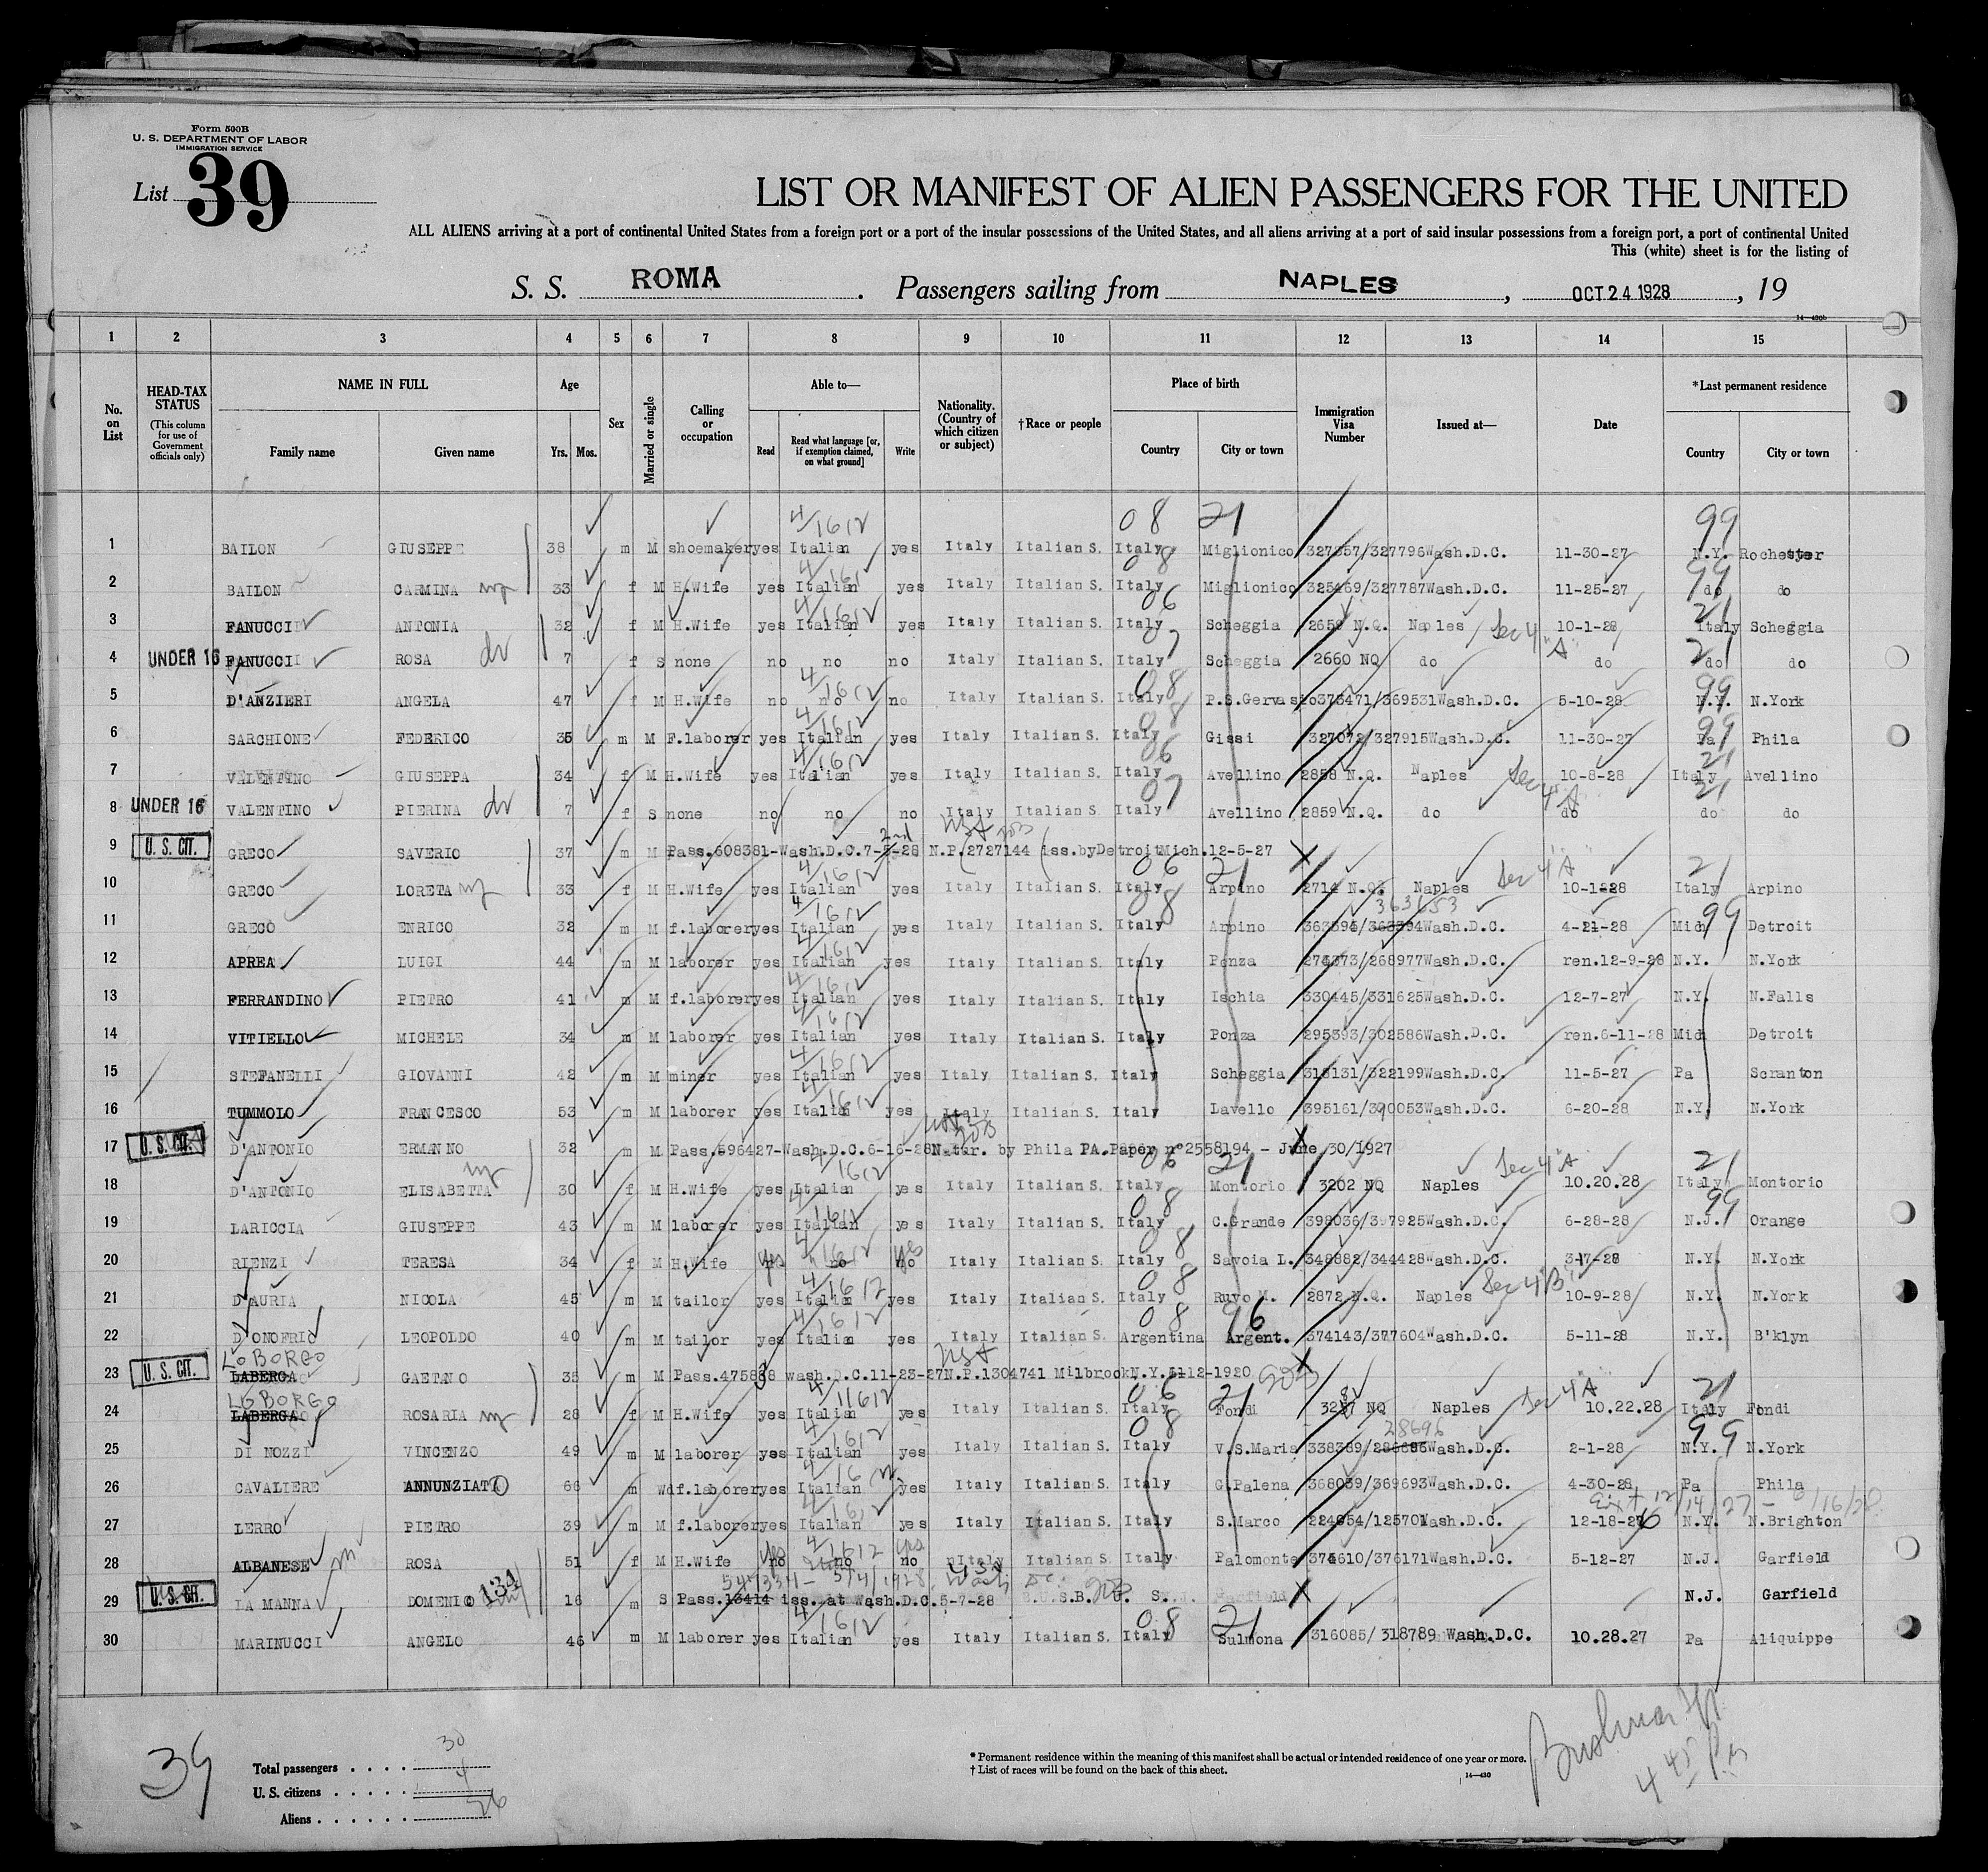 Form 500B
U. S. DEPARTMENT OF LABOR
IMMIGRATION SERVICE
List 39
LIST OR MANIFEST OF ALIEN PASSENGERS FOR THE UNITED
ALL ALIENS arriving at a port of continental United States from a foreign port or a port of the insular possessions of the United States, and all aliens arriving at a port of said insular possessions from a foreign port, a port of continental United
This (white) sheet is for the listing of
S. S. ROMA. Passengers sailing from NAPLES, OCT 24 1928, 19
1 2 3 4 5 6 7 8 9 10 11 12 13 14 15
No. on List
HEAD-TAX STATUS
(This column for use of Government officials only)
NAME IN FULL
Family name Given name
Age
Yrs. Mos.
Sex
Married or single
Calling or occupation
Able to—
Read
Read what language [or, if exemption claimed, on what ground]
Write
Nationality. (Country of which citizen or subject)
†Race or people
Place of birth
Country City or town
Immigration Visa Number
Issued at—
Date
*Last permanent residence
Country City or town
1 BAILON GIUSEPPE 38 m M shoemaker yes Italian yes Italy Italian S. Italy Miglionico /327796 Wash.D.C. 11-30-27 N.Y. Rochester
2 BAILON CARMINA 33 f M H.Wife yes Italian yes Italy Italian S. Italy Miglionico /327787 Wash.D.C. 11-25-27 do do
3 FANUCCI ANTONIA 32 f M H.Wife yes Italian yes Italy Italian S. Italy Scheggia 2659 N.Q. Naples Sec 4 "A" 10-1-28 Italy Scheggia
4 UNDER 16 FANUCCI ROSA 7 f S none no no no Italy Italian S. Italy Scheggia 2660 NQ do do do do
5 D'ANZIERI ANGELA 47 f M H.Wife no no no Italy Italian S. Italy P.S.Gervasio 373471/369531 Wash.D.C. 5-10-28 N.Y. N.York
6 SARCHIONE FEDERICO 35 m M F.laborer yes Italian yes Italy Italian S. Italy Gissi 327072/327915 Wash.D.C. 11-30-27 Pa Phila
7 VALENTINO GIUSEPPA 34 f M H.Wife yes Italian yes Italy Italian S. Italy Avellino 2858 N.Q. Naples Sec 4 A 10-8-28 Italy Avellino
8 UNDER 16 VALENTINO PIERINA 7 f S none no no no Italy Italian S. Italy Avellino 2859 N.Q. do do do do
9 U. S. CIT. GRECO SAVERIO 37 m M Pass.608381-Wash.D.C.7- -28 N.P.2727144 iss.by Detroit Mich.12-5-27
10 GRECO LORETA 33 f M H.Wife yes Italian yes Italy Italian S. Italy Arpino 2714 N.Q. Naples Sec 4 "A" 10-1-28 Italy Arpino
11 GRECO ENRICO 32 m M f.laborer yes Italian yes Italy Italian S. Italy Arpino 363653 Wash.D.C. 4-21-28 Mich Detroit
12 APREA LUIGI 44 m M laborer yes Italian yes Italy Italian S. Italy Ponza /268977 Wash.D.C. ren.12-9-28 N.Y. N.York
13 FERRANDINO PIETRO 41 m M f.laborer yes Italian yes Italy Italian S. Italy Ischia 330445/331625 Wash.D.C. 12-7-27 N.Y. N.Falls
14 VITIELLO MICHELE 34 m M laborer yes Italian yes Italy Italian S. Italy Ponza 295393/302586 Wash.D.C. ren.6-11-28 Mich Detroit
15 STEFANELLI GIOVANNI 42 m M miner yes Italian yes Italy Italian S. Italy Scheggia /322199 Wash.D.C. 11-5-27 Pa Scranton
16 TUMMOLO FRANCESCO 53 m M laborer yes Italian yes Italy Italian S. Italy Lavello 395161/390053 Wash.D.C. 6-20-28 N.Y. N.York
17 U. S. CIT. D'ANTONIO ERMANNO 32 m M Pass.596427-Wash.D.C.6-16-28 Natur. by Phila PA.Paper nº2558194 - June 30/1927
18 D'ANTONIO ELISABETTA 30 f M H.Wife yes Italian yes Italy Italian S. Italy Montorio 3202 NQ Naples Sec 4 "A" 10.20.28 Italy Montorio
19 LARICCIA GIUSEPPE 43 m M laborer yes Italian yes Italy Italian S. Italy C.Grande 398036/397925 Wash.D.C. 6-28-28 N.J. Orange
20 RIENZI TERESA 34 f M H.Wife yes no yes Italy Italian S. Italy Savoia L. 348882/344428 Wash.D.C. 3-17-28 N.Y. N.York
21 D'AURIA NICOLA 45 m M tailor yes Italian yes Italy Italian S. Italy Ruvo M. 2872 N.Q. Naples Sec 4 "B" 10-9-28 N.Y. N.York
22 D'ONOFRIO LEOPOLDO 40 m M tailor yes Italian yes Italy Italian S. Argentina Argent. 374143/377604 Wash.D.C. 5-11-28 N.Y. B'klyn
LO BORGO
23 U. S. CIT. LABERGA GAETANO 35 m M Pass.475838 wash.D.C.11-23-27 N.P.1304741 Milbrook N.Y. 12-1920
LO BORGO
24 LABERGA ROSARIA 28 f M H.Wife yes Italian yes Italy Italian S. Italy Fondi NQ Naples Sec 4 A 10.22.28 Italy Fondi
25 DI NOZZI VINCENZO 49 m M laborer yes Italian yes Italy Italian S. Italy V.S.Maria 338389/ 28696 Wash.D.C. 2-1-28 N.Y. N.York
26 CAVALIERE ANNUNZIATO 66 m Wd f.laborer yes Italian yes Italy Italian S. Italy G.Palena 368039/369693 Wash.D.C. 4-30-28 Pa Phila
27 LERRO PIETRO 39 m M f.laborer yes Italian yes Italy Italian S. Italy S.Marco /125701 Wash.D.C. 12-18-26 N.Y. N.Brighton
28 ALBANESE ROSA 51 f M H.Wife yes no yes Italy Italian S. Italy Palomonte 374610/376171 Wash.D.C. 5-12-27 N.J. Garfield
29 U. S. CIT. LA MANNA DOMENICO 16 m S Pass.13414 iss. at Wash.D.C.5-7-28 N.J. Garfield
30 MARINUCCI ANGELO 46 m M laborer yes Italian yes Italy Italian S. Italy Sulmona 316085/318789 Wash.D.C. 10.28.27 Pa Aliquippe
39
Total passengers . . . . 30
U. S. citizens . . . . . 4
Aliens . . . . . . 26
* Permanent residence within the meaning of this manifest shall be actual or intended residence of one year or more.
† List of races will be found on the back of this sheet.
14—430